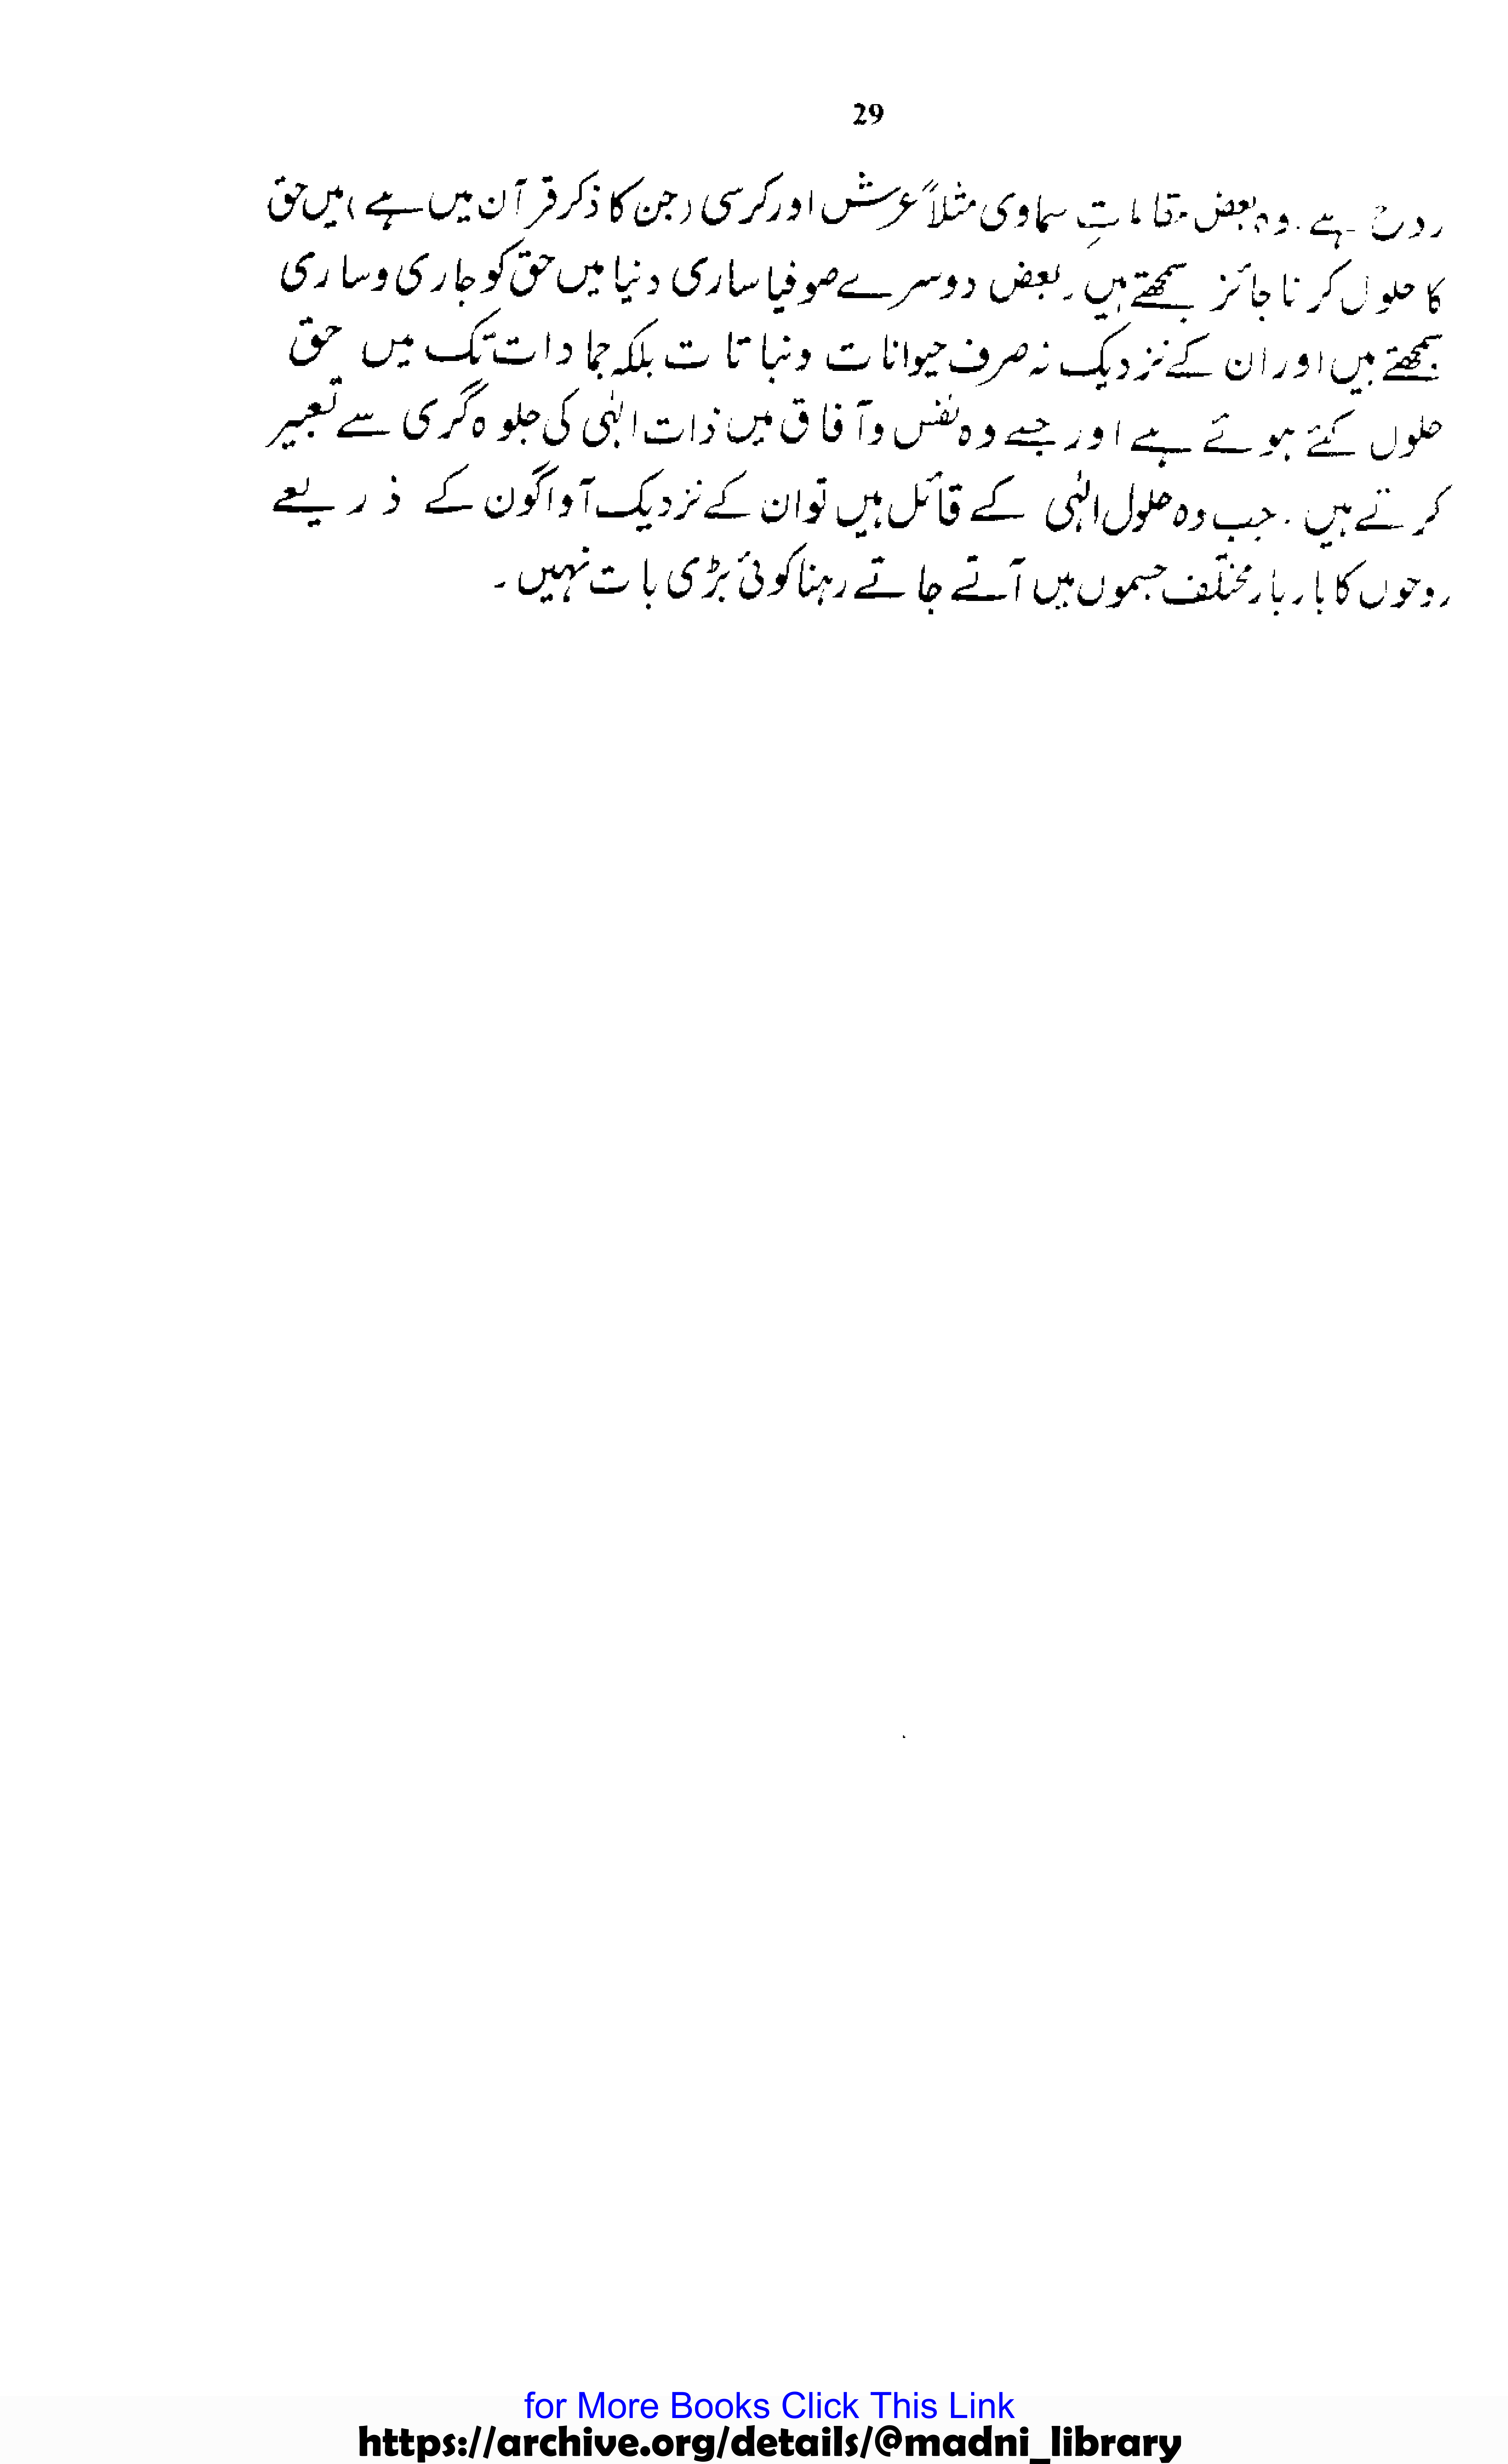 29
ہے . وہ بعض مقاماتِ سماوی مثلاً عرش اور کرسی (جن کا ذکر قرآن میں ہے) میں حق
کا حلول کرنا جائز سمجھتے ہیں ۔ بعض دوسرے صوفیا ساری دنیا میں حق کو جاری و ساری
سمجھتے ہیں اور ان کے نزدیک نہ صرف حیوانات و نباتات بلکہ جمادات تک میں حق
حلول کئے ہوئے ہے اور جسے وہ نفس و آفاق میں ذات الٰہی کی جلوہ گری سے تعبیر
کرتے ہیں . جب وہ حلول الٰہی کے قائل ہیں تو ان کے نزدیک آواگون کے ذریعے
روحوں کا بار بار مختلف جسموں میں آتے جاتے رہنا کوئی بڑی بات نہیں ۔
for More Books Click This Link
https://archive.org/details/@madni_library